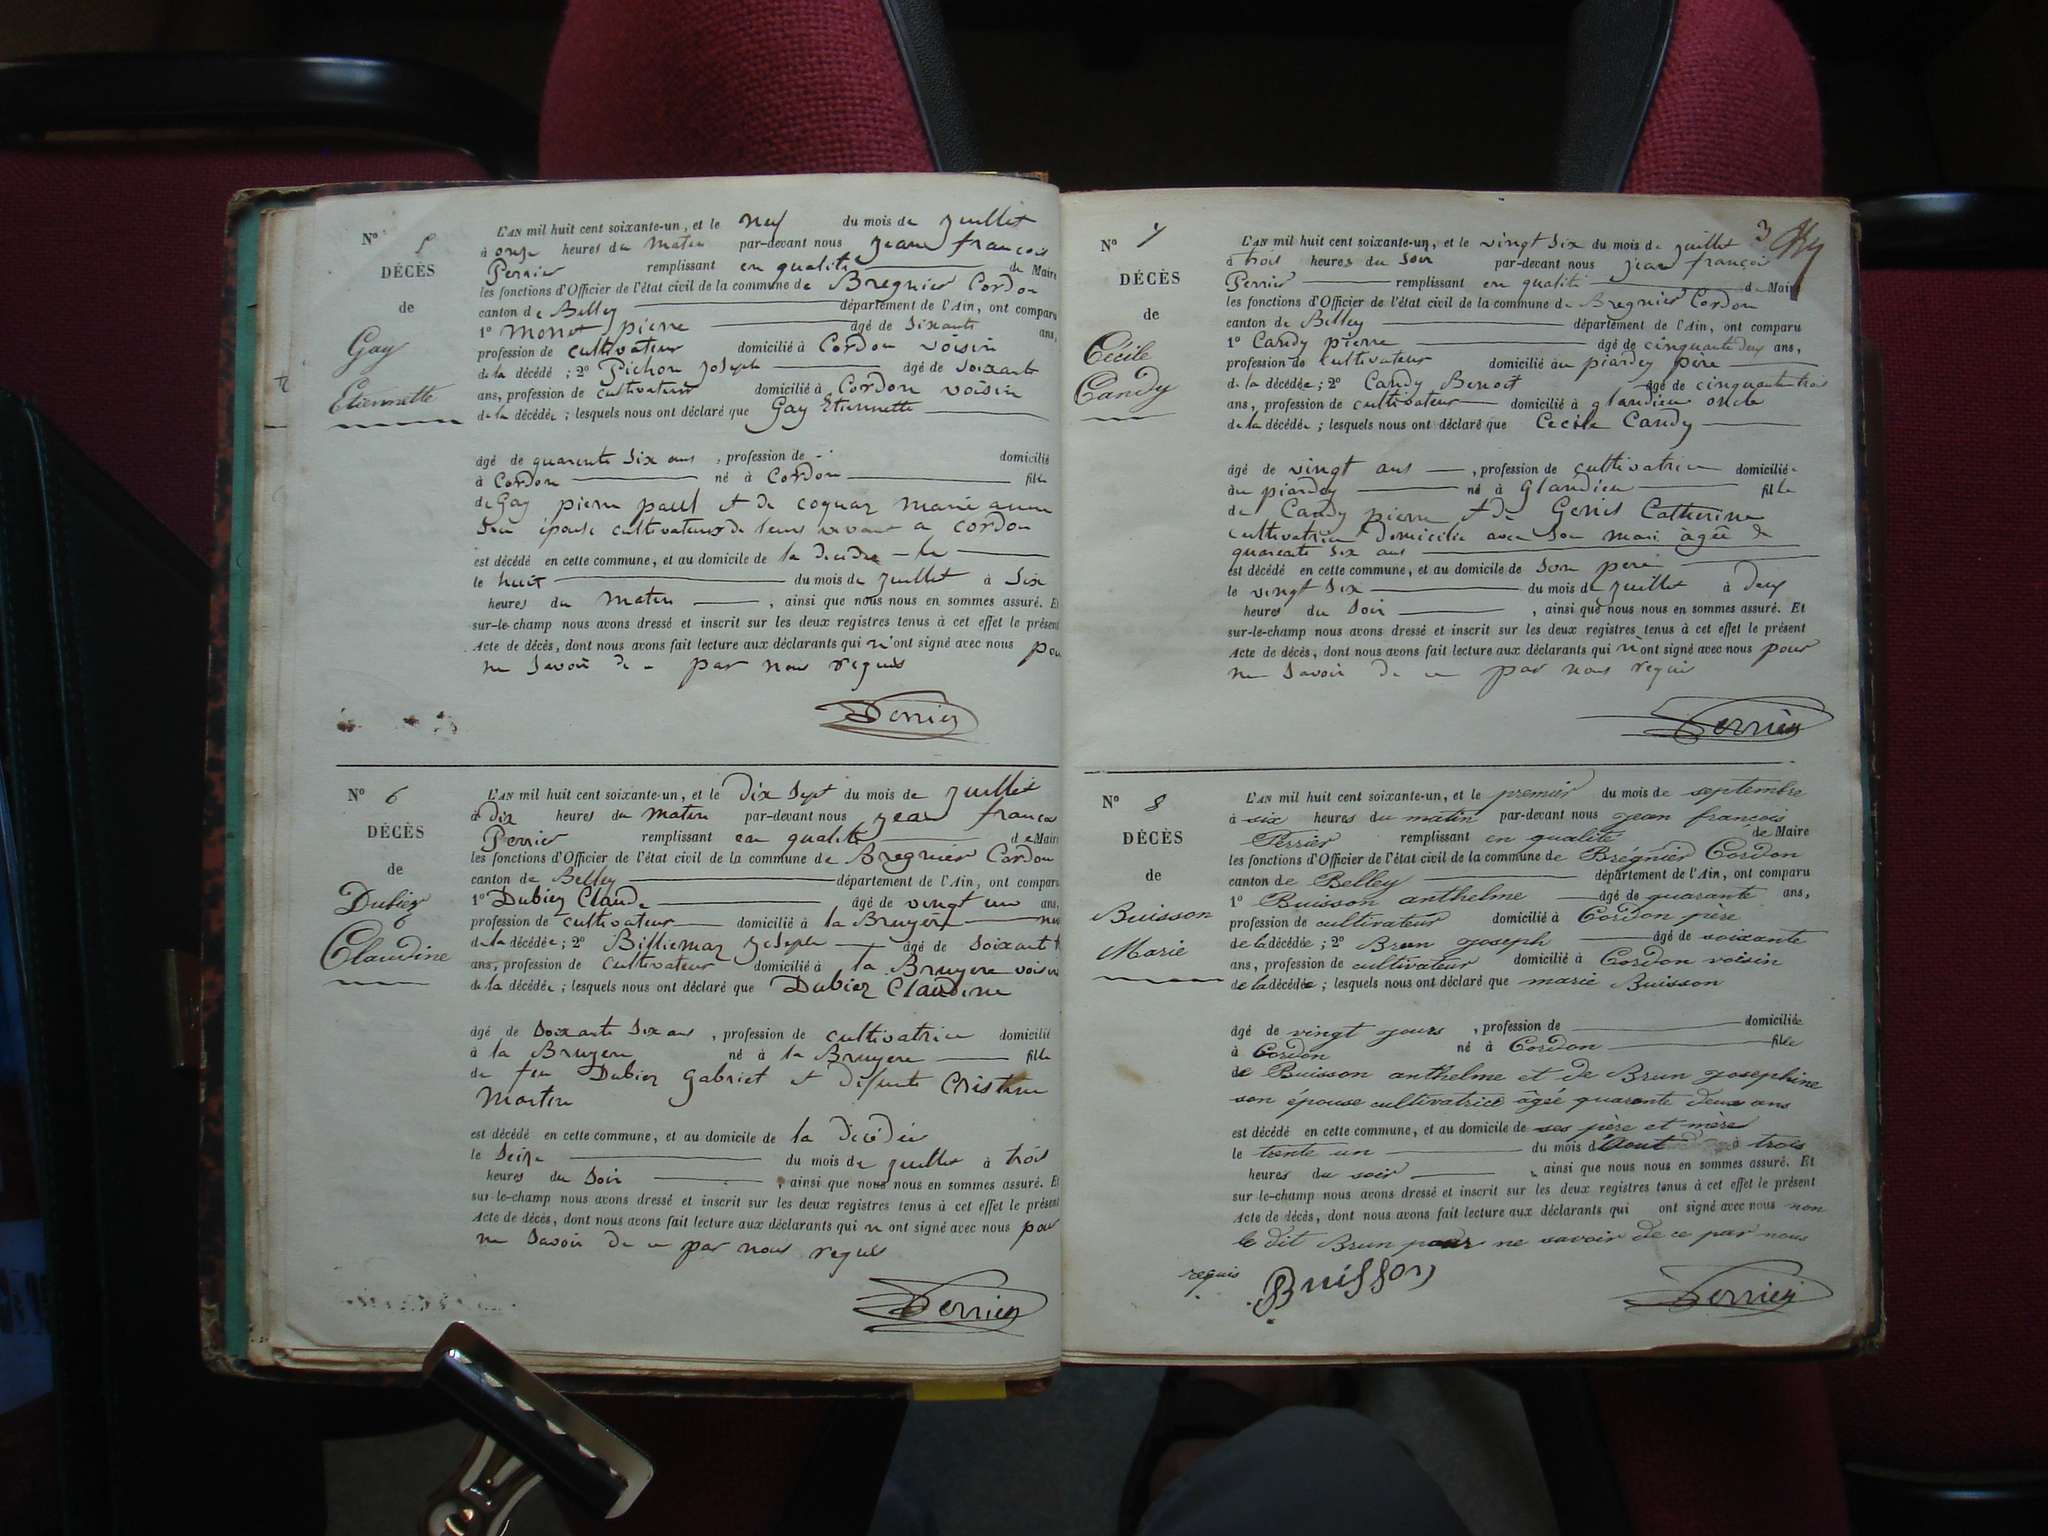 N° 5
DÉCÈS
de
Gay
Etiennette
L'AN mil huit cent soixante-un, et le neuf du mois de juillet
à onze heures du matin par-devant nous jean françois
Perrier remplissant en qualité de Maire
les fonctions d'Officier de l'état civil de la commune de Bregnier Cordon
canton de Belley département de l'Ain, ont comparu
1° Monet pierre âgé de Sixante ans,
profession de cultivateur domicilié à Cordon voisin
de la décédé ; 2° Pichon joseph âgé de soixante
ans, profession de cultivateur domicilié à Cordon voisin
de la décédée ; lesquels nous ont déclaré que Gay Etiennette
âgé de quarente six ans , profession de domicilié
à Cordon né à Cordon fille
de Gay pierre paul et de coquaz marie anne
son épouse cultivateurs de leurs vivant a cordon
est décédé en cette commune, et au domicile de la decidee le
le huit du mois de juillet à six
heures du matin , ainsi que nous nous en sommes assuré. Et
sur-le-champ nous avons dressé et inscrit sur les deux registres tenus à cet effet le présent
Acte de décès, dont nous avons fait lecture aux déclarants qui n'ont signé avec nous pour
ne savoir de par nous requis
Perrier
N° 6
DÉCÈS
de
Dubiez
Claudine
L'AN mil huit cent soixante-un, et le dix sept du mois de juillet
à dix heures du matin par-devant nous jean françois
Perrier remplissant en qualité de Maire
les fonctions d'Officier de l'état civil de la commune de Bregnier Cordon
canton de Belley département de l'Ain, ont comparu
1° Dubiez Claude âgé de vingt un ans,
profession de cultivateur domicilié à la Bruyere
de la décédée ; 2° Billiemaz joseph âgé de soixante
ans, profession de cultivateur domicilié à la Bruyere voisin
de la décédée ; lesquels nous ont déclaré que Dubiez Claudine
âgé de soixante six ans , profession de cultivatrice domicilié
à la Bruyere né à la Bruyere fille
de feu Dubiez gabriel et defunte Cristine
Martin
est décédé en cette commune, et au domicile de la décédée
le seize du mois de juillet à trois
heures du soir , ainsi que nous nous en sommes assuré. Et
sur-le-champ nous avons dressé et inscrit sur les deux registres tenus à cet effet le présent
Acte de décès, dont nous avons fait lecture aux déclarants qui n ont signé avec nous pour
ne savoir de ce par nous requis
Perrier
3
N° 7
DÉCÈS
de
Cécile
Candy
L'AN mil huit cent soixante-un, et le vingt six du mois de juillet
à trois heures du soir par-devant nous jean françois
Perrier remplissant en qualité de Maire
les fonctions d'Officier de l'état civil de la commune de Bregnier Cordon
canton de Belley département de l'Ain, ont comparu
1° Candy pierre âgé de cinquante deux ans,
profession de cultivateur domicilié au piardey père
de la décédée ; 2° Candy Benoit âgé de cinquante trois
ans, profession de cultivateur domicilié à glandieu oncle
de la décédée ; lesquels nous ont déclaré que Cecile Candy
âgé de vingt ans , profession de cultivatrice domicilié
au piardey né à Glandieu fille
de Candy pierre et de Genis Catherine
cultivatrice domicilie avec son mari âgée de
quarante six ans
est décédé en cette commune, et au domicile de son pere
le vingt six du mois de juillet à deux
heures du soir , ainsi que nous nous en sommes assuré. Et
sur-le-champ nous avons dressé et inscrit sur les deux registres tenus à cet effet le présent
Acte de décès, dont nous avons fait lecture aux déclarants qui n'ont signé avec nous pour
ne savoir de ce par nous requis
Perrier
N° 8
DÉCÈS
de
Buisson
Marie
L'AN mil huit cent soixante-un, et le premier du mois de septembre
à six heures du matin par-devant nous jean françois
Perrier remplissant en qualité de Maire
les fonctions d'Officier de l'état civil de la commune de Brégnier Cordon
canton de Belley département de l'Ain, ont comparu
1° Buisson anthelme âgé de quarante ans,
profession de cultivateur domicilié à Cordon père
de la décédée ; 2° Brun joseph âgé de soixante
ans, profession de cultivateur domicilié à Cordon voisin
de la décédée ; lesquels nous ont déclaré que marie Buisson
âgé de vingt jours , profession de domiciliée
à Cordon né à Cordon fille
de Buisson anthelme et de Brun josephine
son épouse cultivatrice âgée quarante deux ans
est décédé en cette commune, et au domicile de ses père et mère
le trente un du mois d'Aout à trois
heures du soir , ainsi que nous nous en sommes assuré. Et
sur-le-champ nous avons dressé et inscrit sur les deux registres tenus à cet effet le présent
Acte de décès, dont nous avons fait lecture aux déclarants qui ont signé avec nous non
le dit Brun pour ne savoir de ce par nous
requis Buisson Perrier